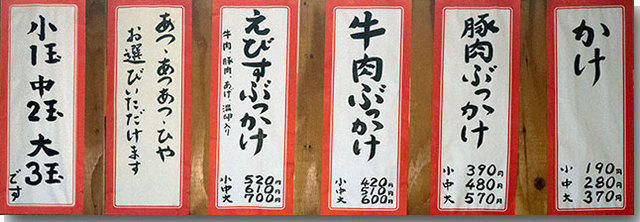 かけ
小 190円
中 280円
大 370円
豚肉ぶっかけ
小 390円
中 480円
大 570円
牛肉ぶっかけ
小 420円
中 510円
大 600円
えびすぶっかけ
牛肉、豚肉、あげ、温卵入り
小 520円
中 610円
大 700円
あつ・あつあつ・ひや
お選びいただけます
小1玉 中2玉 大3玉
です